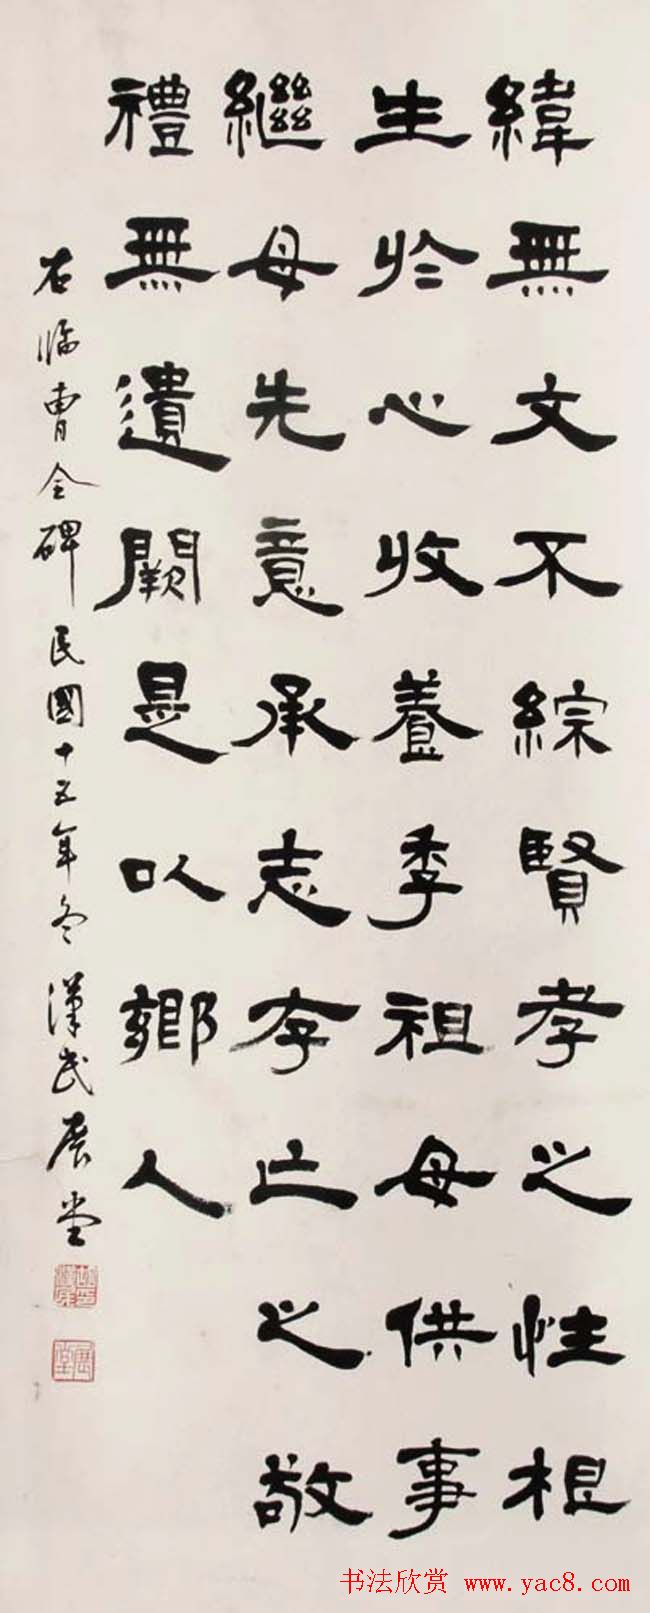 緯無文不綜賢孝之性根
生於心收養季祖母供事
繼母先意承志存亡之敬
禮無遺闕是以鄉人
右臨曹全碑民國十五年冬漢民展堂
展堂
书法欣赏 www.yac8.com